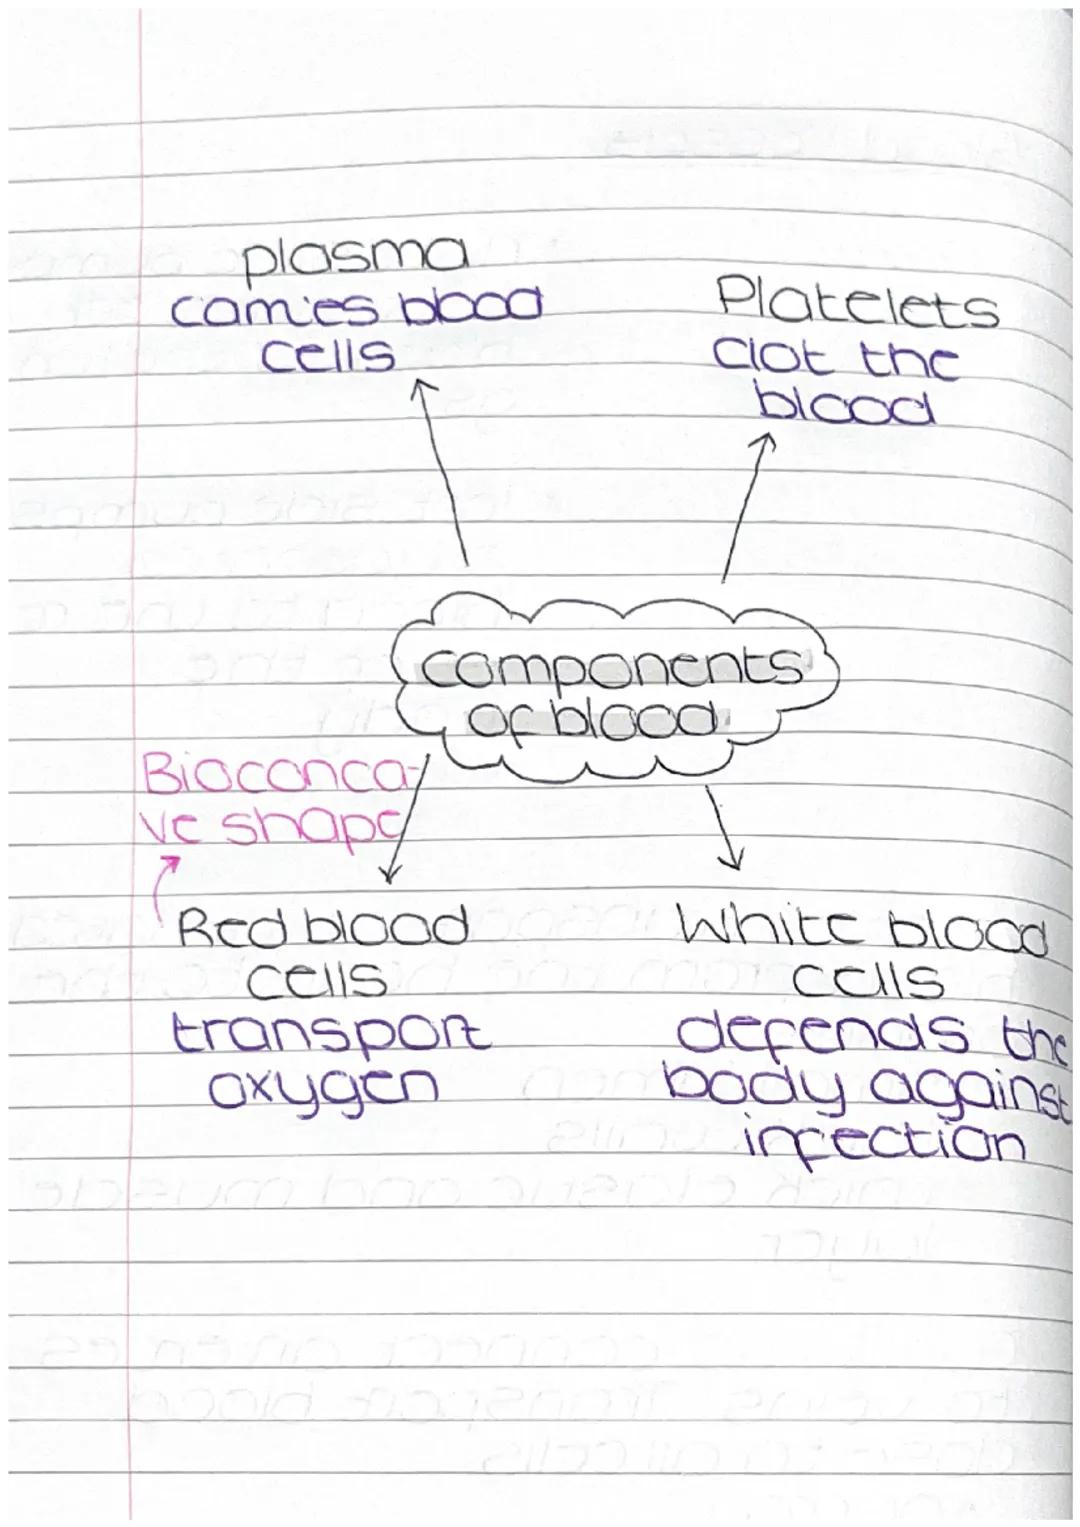 plasma
carries blood
cells
Platelets
clot the
blood
components
of blood
Bioconca-
ve shape
Red blood
cells
transport
oxygen
White blood
cells
defends the
body against
infection